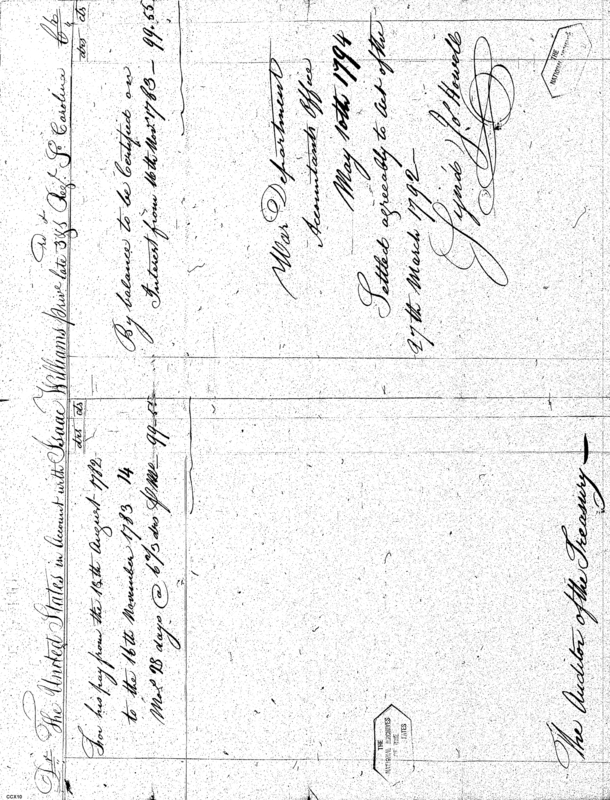 Dr The United States in Account with Isaac Williams Priv. late 3d Regt No Carolina Cr
drs cts
For his pay from the 18th August 1782
to the 16th November 1783 14
Mos 28 days @ 6 2/3 drs 99.55
drs cts
By balance to be Certified on
Interest from 16th Novr 1783 — 99.55
War Department
Accountants Office
May 10th 1794
Settled agreeably to Act of the
27th March 1792 —
Signd Jo Howell
The Auditor of the Treasury —
THE
NATIONAL ARCHIVES
OF THE
THE
CCX10